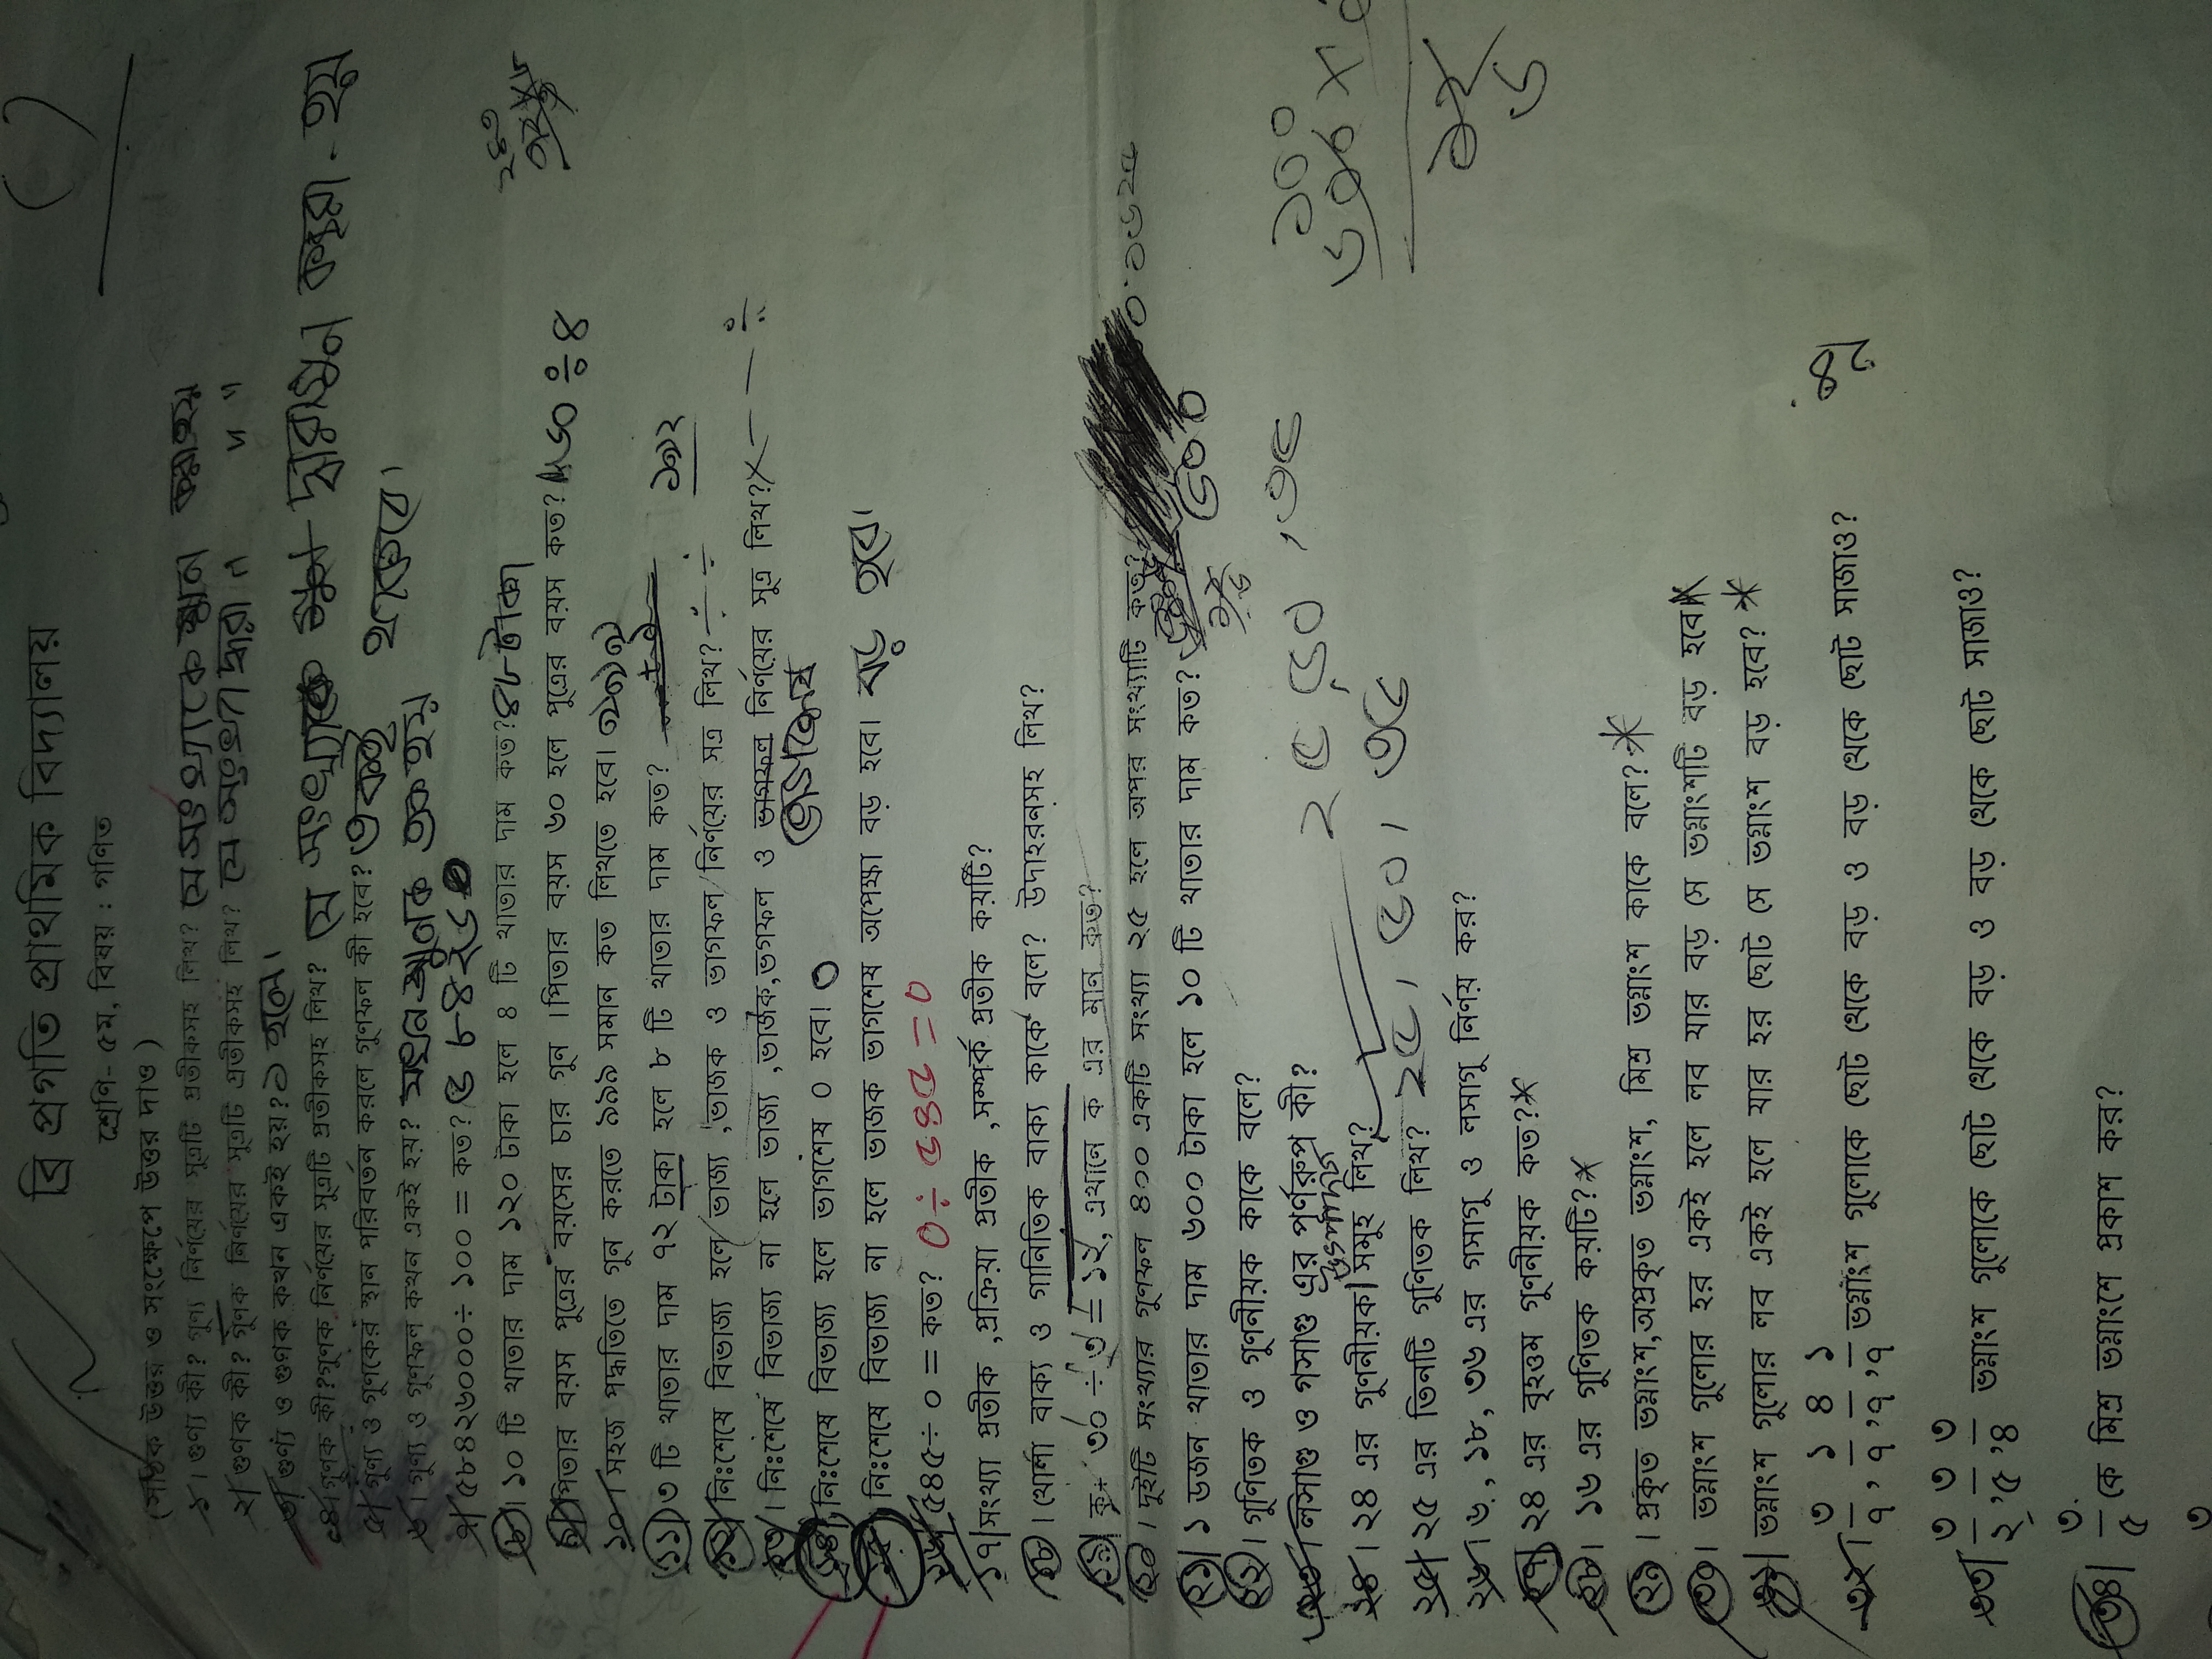 বি প্রগতি প্রাথমিক বিদ্যালয়
শ্রেণি- ৫ম, বিষয় : গণিত
(সঠিক উত্তর ও সংক্ষেপে উত্তর দাও)
১। গুণ্য কী? গুণ্য নির্ণয়ের সূত্রটি প্রতীকসহ লিখ? যে সংখ্যাকে গুন করা হয়
২। গুণক কী? গুনক নির্ণয়ের সূত্রটি প্রতীকসহ লিখ? যে সংখ্যা দ্বারা " "
৩। গুণ্য ও গুণক কখন একই হয়? ১ হলে।
৪। গুনক কী? গুনক নির্ণয়ের সূত্রটি প্রতীকসহ লিখ? যে সংখ্যাকে দ্বারা গুন করা হয়
৫। গুন্য ও গুনকের স্থান পরিবর্তন করলে গুনফল কী হবে? একই থাকবে।
৬। গুন্য ও গুনফল কখন একই হয়? যখন গুনক ১ হয়
৭। ৫৮৪২৬০০০ ÷ ১০০ = কত?
৮। ১০ টি খাতার দাম ১২০ টাকা হলে ৪ টি খাতার দাম কত? ৪৮ টাকা
৯। পিতার বয়স পুত্রের বয়সের চার গুন । পিতার বয়স ৬০ হলে পুত্রের বয়স কত? ৬০ ÷ ৪
১০। সহজ পদ্ধতিতে গুন করতে ৯৯৯ সমান কত লিখতে হবে।
১১। ৩ টি খাতার দাম ৭২ টাকা হলে ৮ টি খাতার দাম কত? ১৯২
১২। নিঃশেষে বিভাজ্য হলে ভাজ্য ,ভাজক ও ভাগফল নির্ণয়ের সূত্র লিখ?
১৩। নিঃশেষে বিভাজ্য না হলে ভাজ্য ,ভাজক,ভাগফল ও ভাগফল নির্ণয়ের সূত্র লিখ?
ভাগশেষ
১৪। নিঃশেষে বিভাজ্য হলে ভাগশেষ ০ হবে। ০
১৫। নিঃশেষে বিভাজ্য না হলে ভাজক ভাগশেষ অপেক্ষা বড় হবে। বড় হবে।
১৬। ৫৪৫ ÷ ০ = কত? ০ ÷ ৫৪৫ = ০
১৭। সংখ্যা প্রতীক ,প্রক্রিয়া প্রতীক ,সম্পর্ক প্রতীক কয়টি?
১৮। খোলা বাক্য ও গানিতিক বাক্য কাকে বলে? উদাহরনসহ লিখ?
১৯। ক + ৩০ ÷ ৬ = ১২, এখানে ক এর মান কত?
২০। দুইটি সংখ্যার গুনফল ৪০০ একটি সংখ্যা ২৫ হলে অপর সংখ্যাটি কত?
২১। ১ ডজন খাতার দাম ৬০০ টাকা হলে ১০ টি খাতার দাম কত? ৫০০
২২। গুনিতক ও গুননীয়ক কাকে বলে?
২৩। লসাগু ও গসাগু এর পূর্ণরূপ কী?
২৪। ২৪ এর গুননীয়ক। সমূহ লিখ?
২৫। ২৫ এর তিনটি গুনিতক লিখ? ২৫, ৫০, ৭৫
২৫ ৫০, ৭৫
২৬। ৬, ১৮, ৩৬ এর গসাগু ও লসাগু নির্ণয় কর?
২৭। ২৪ এর বৃহত্তম গুননীয়ক কত?*
২৮। ১৬ এর গুনিতক কয়টি?*
২৯। প্রকৃত ভগ্নাংশ,অপ্রকৃত ভগ্নাংশ, মিশ্র ভগ্নাংশ কাকে বলে?*
৩০। ভগ্নাংশ গুলোর হর একই হলে লব যার বড় সে ভগ্নাংশটি বড় হবে*
৩১। ভগ্নাংশ গুলোর লব একই হলে যার হর ছোট সে ভগ্নাংশ বড় হবে? *
৩২। ৩/৭, ১/৭, ৪/৭, ১/৭ ভগ্নাংশ গুলোকে ছোট থেকে বড় ও বড় থেকে ছোট সাজাও?
৩৩। ৩/২, ৩/৫, ৩/৪ ভগ্নাংশ গুলোকে ছোট থেকে বড় ও বড় থেকে ছোট সাজাও?
৩৪। ৩/৫ কে মিশ্র ভগ্নাংশে প্রকাশ কর?